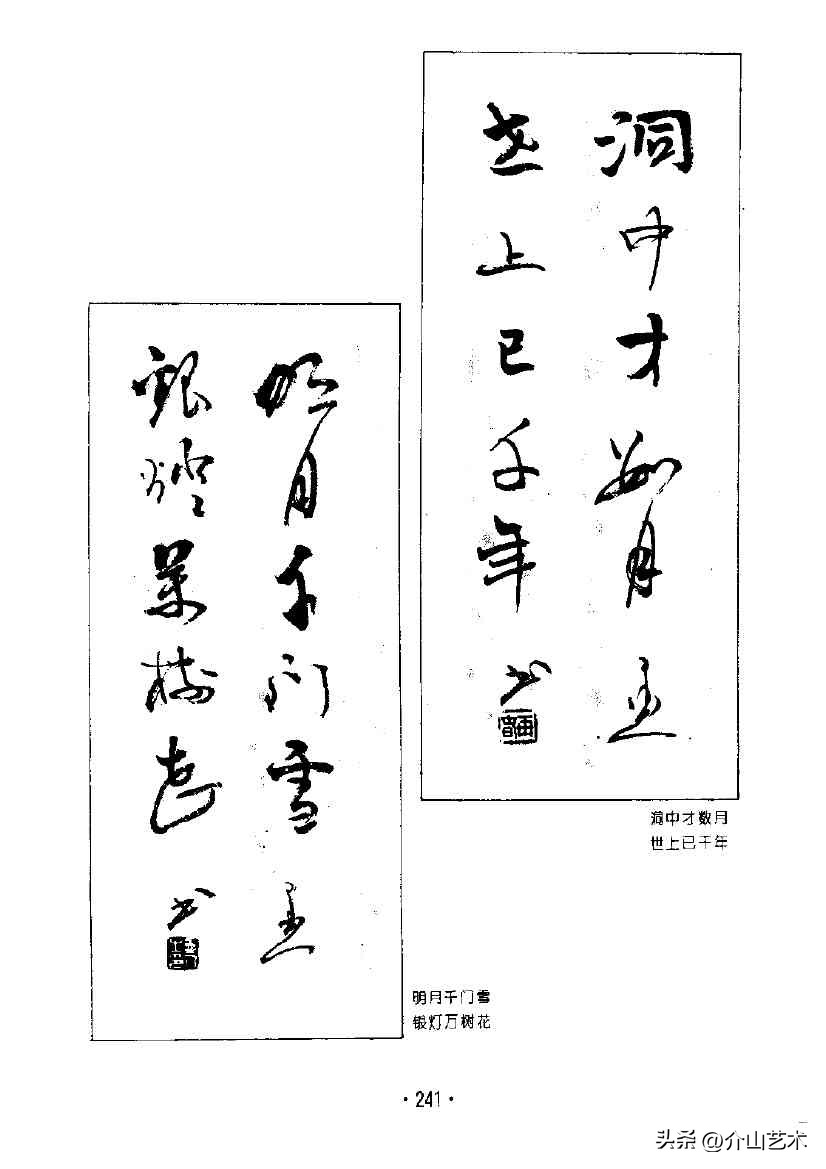 洞中才数月
世上已千年
书
洞中才数月
世上已千年
明月千门雪
銀燈萬樹花
书
明月千门雪
银灯万树花
·241·
头条 @介山艺术